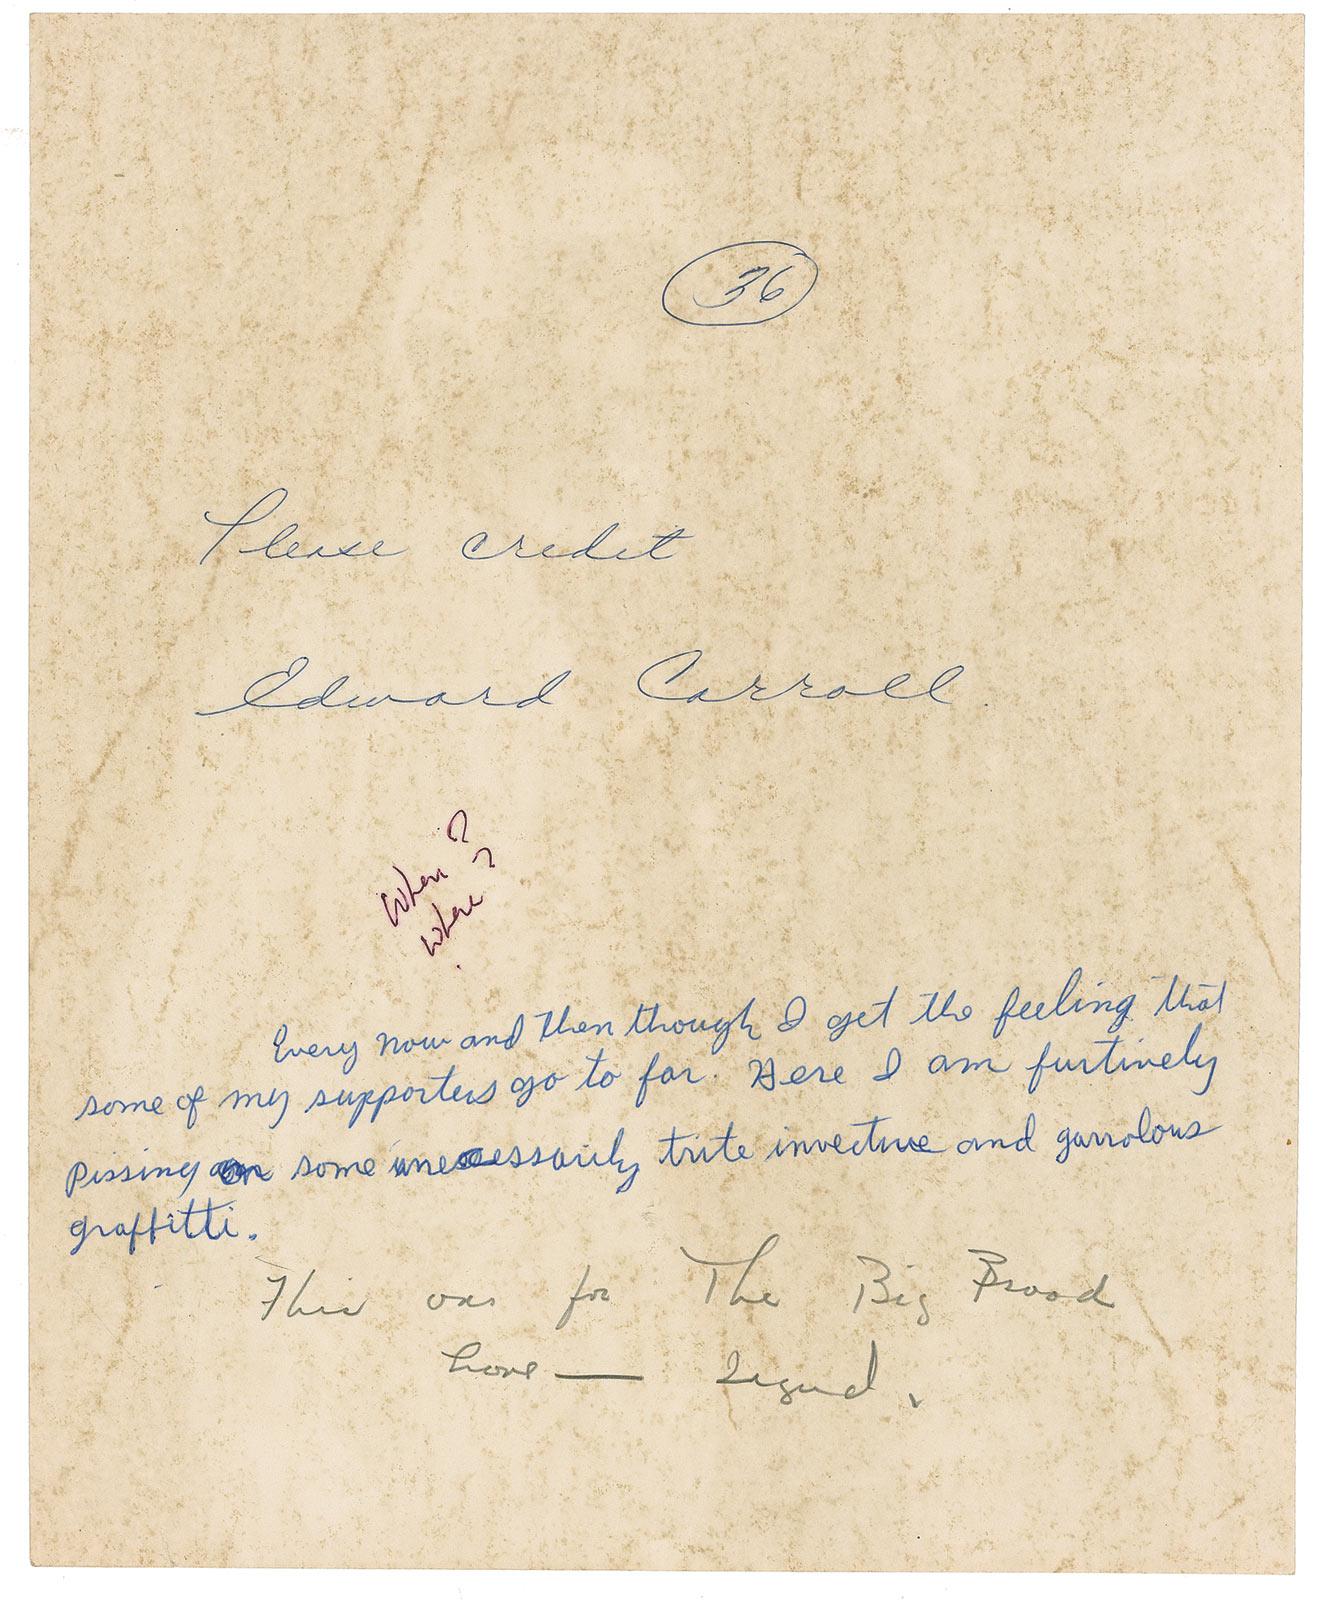 36
Please credit
Edward Carroll.
When?
Where?
Every now and then though I get the feeling that
some of my supporters go to far. Here I am furtively
pissing on some unecessarily trite invective and garrolous
graffitti.
This for The Big
Love —